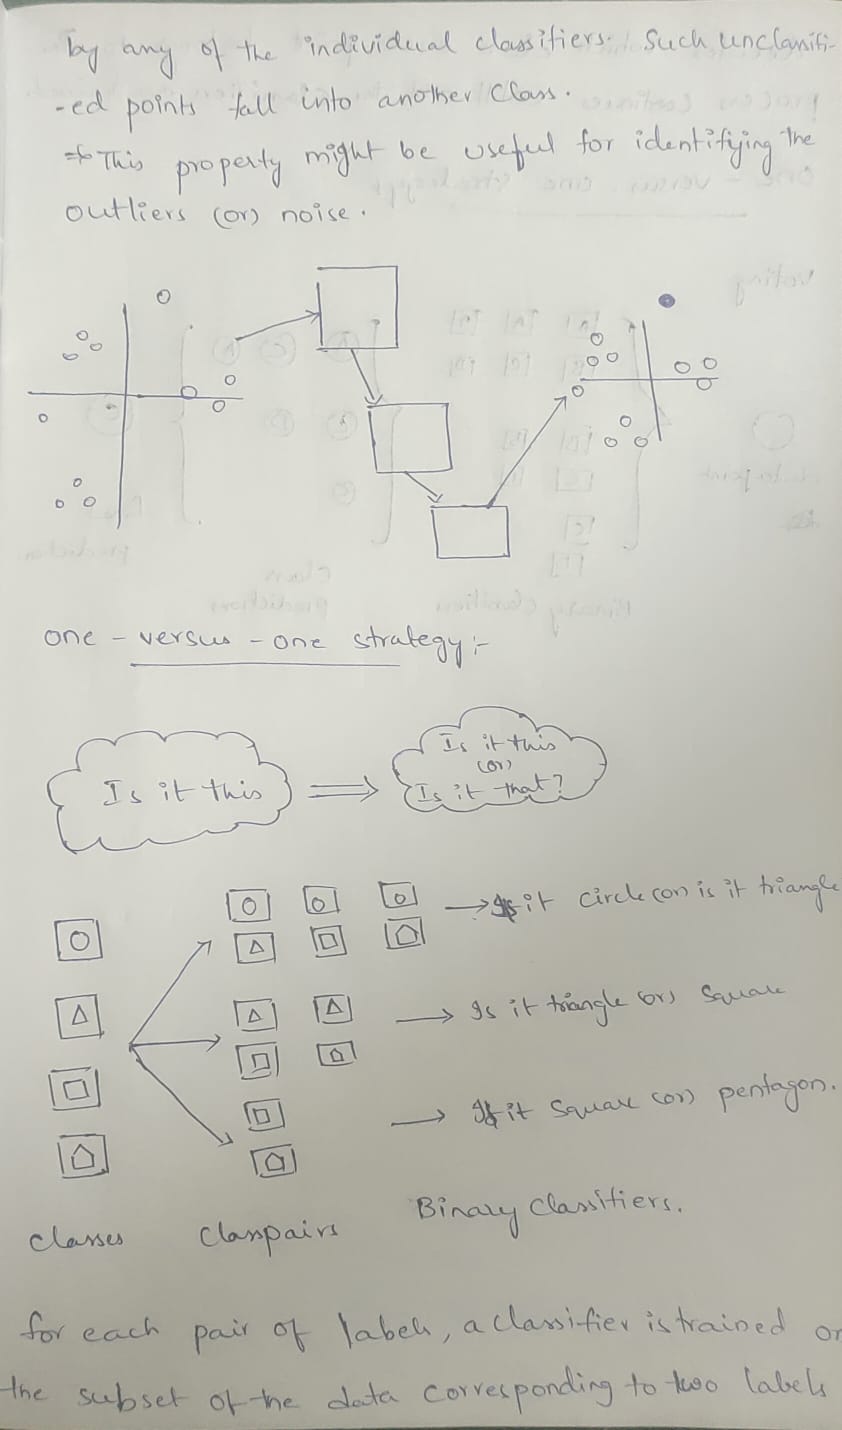 by any of the individual classifiers. Such unclassifi-
-ed points fall into another class.
⇒ This property might be useful for identifying the
outliers (or) noise.
one - versus - one strategy :-
Is it this
Is it this
(or)
Is it that?
→ Is it circle (or) is it triangle
→ Is it triangle (or) Square
→ If it Square (or) pentagon.
classes classpairs Binary classifiers.
for each pair of labels, a classifier is trained on
the subset of the data corresponding to two labels